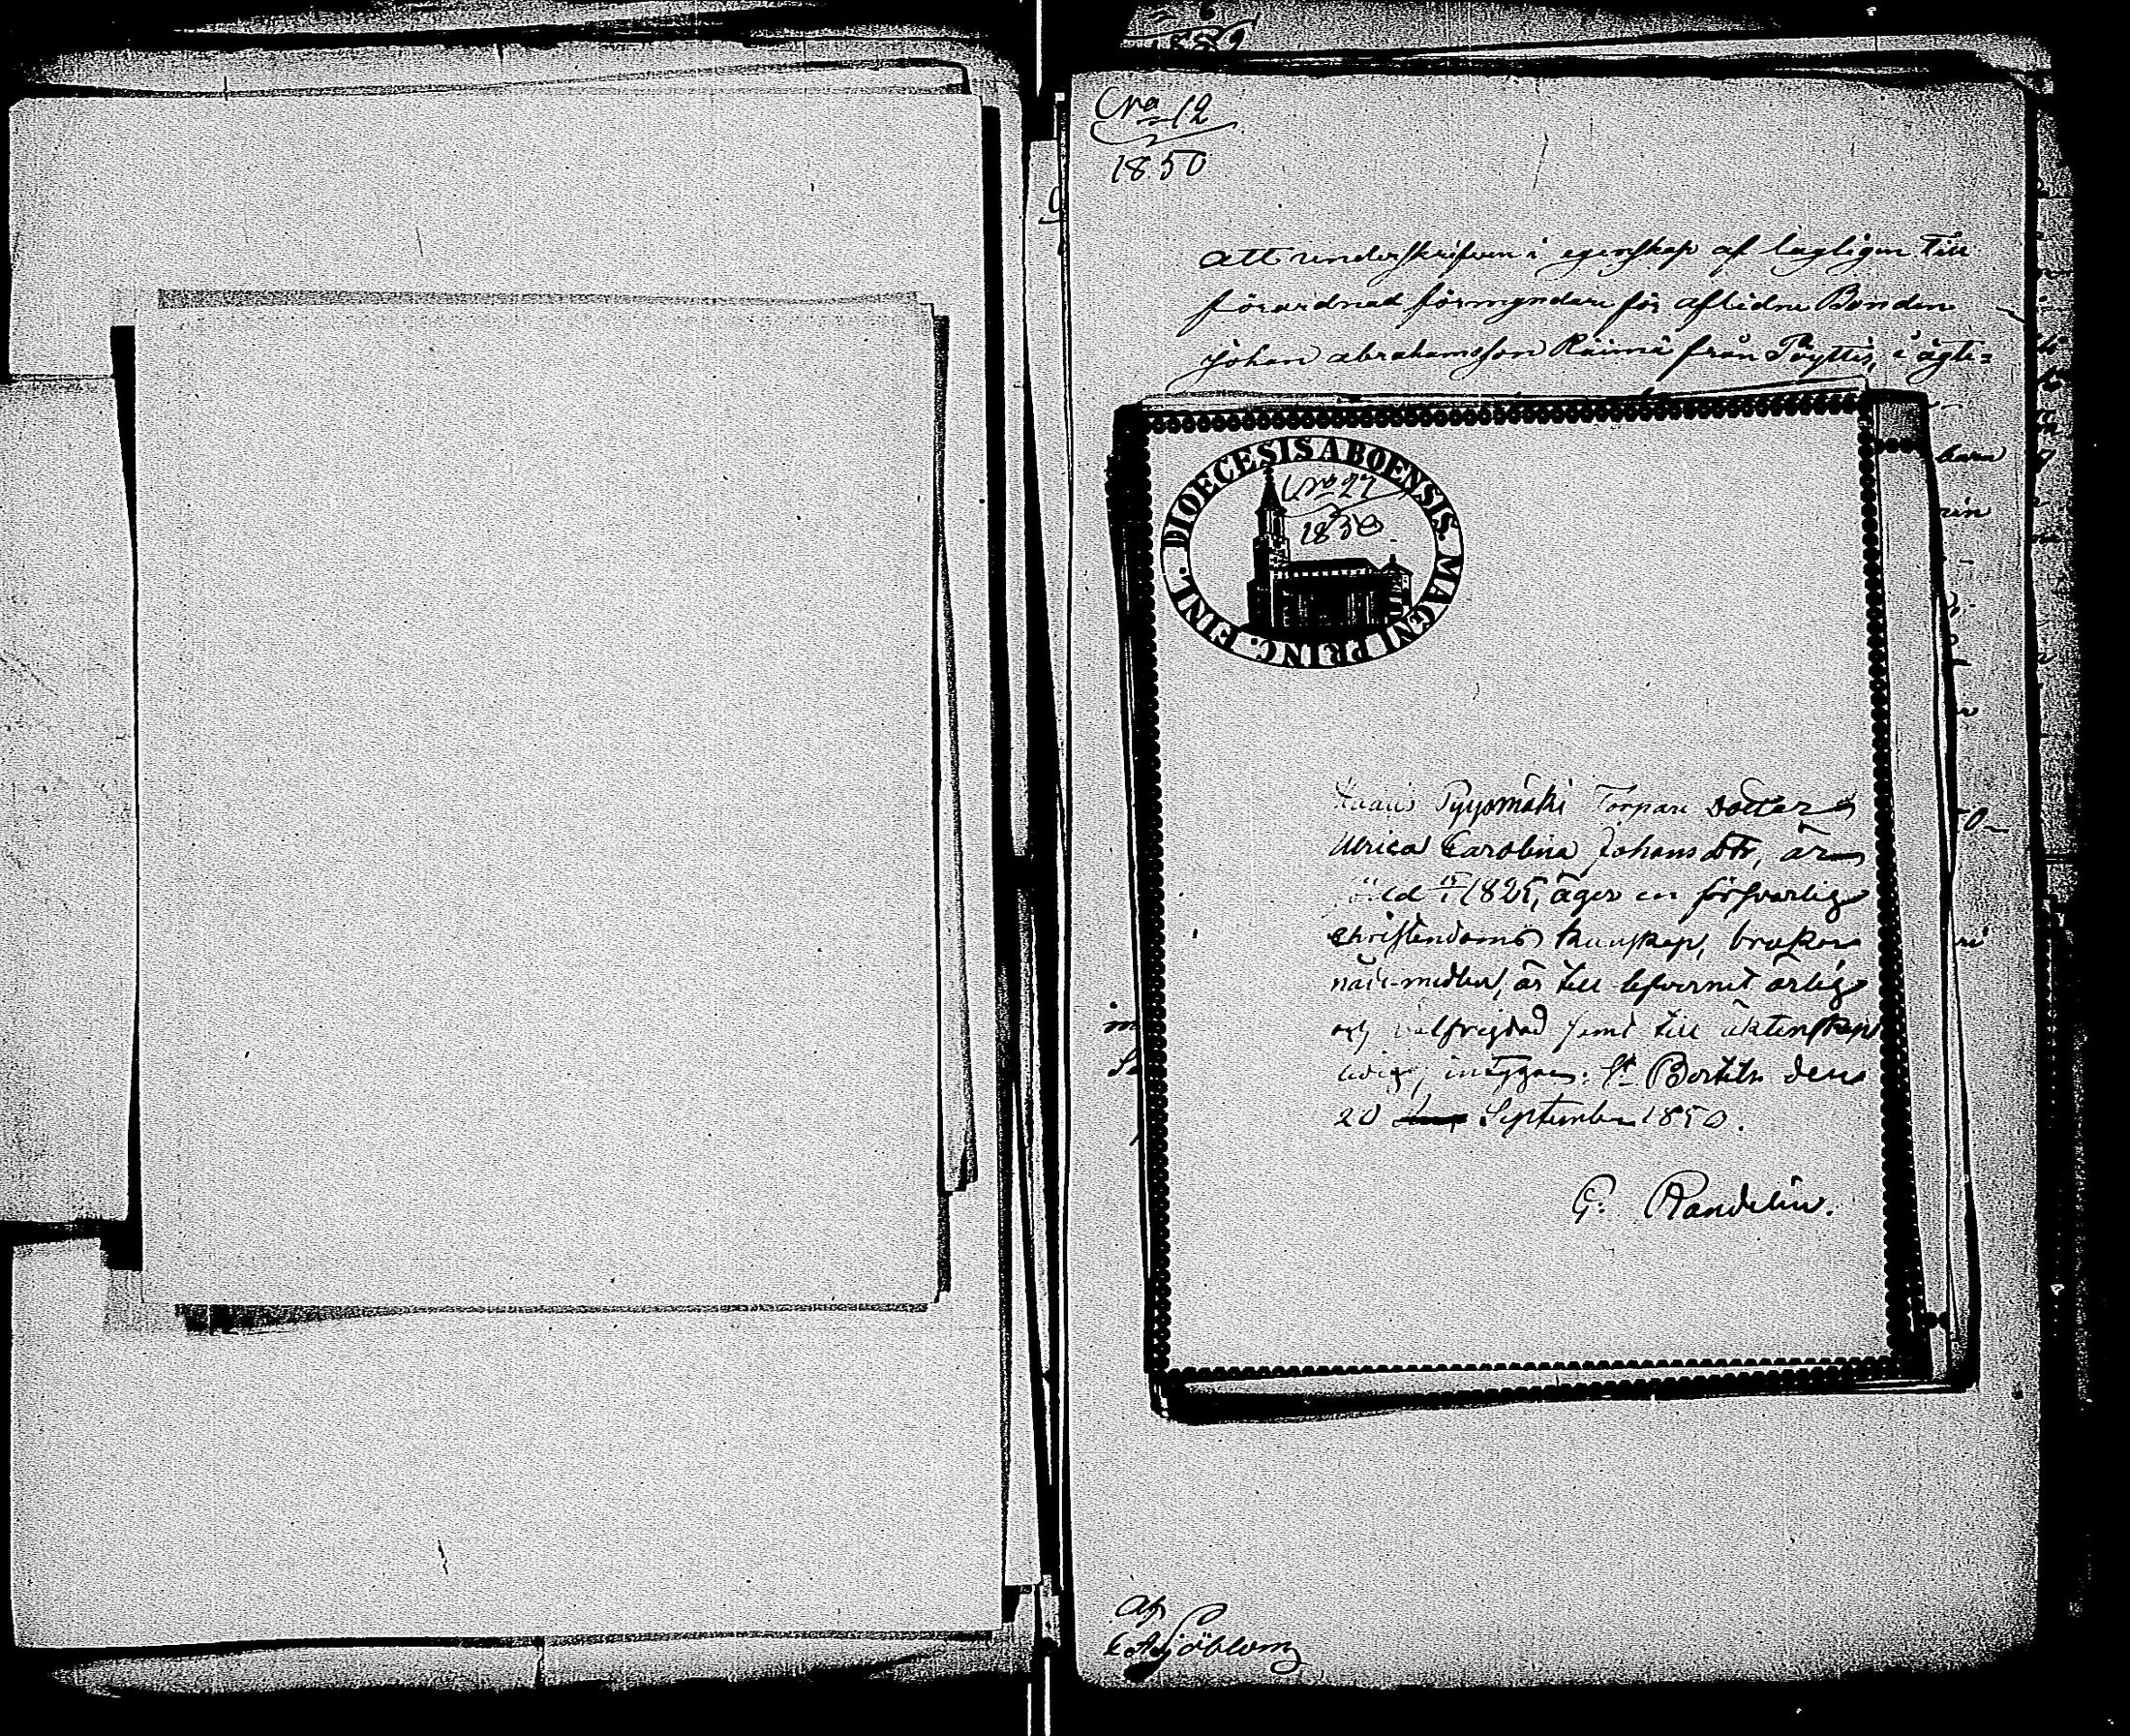 Nro 12
1850
Att underskrifven i egenskap af lagligen till
förordnad förmyndare för aflidne Bonden
Johan Abrahamsson Räimä från Pöyttis, i ägte=
barn
DIOECESIS ABOENSIS. MAGNI PRINC. FINL.
Nro 27
1850.
Pyyomäki Torpare Dotter
Ulrica Carolina Johansdtr, är
född 15 1825, äger en försvarlig
christendoms kunskap, brukar
nåde-medlen, är till lefvernet ärlig
och välfrejdad samt till äktenskap
ledig, intygas. St Bertils den
20 September 1850.
G. Randelin.
Af
Sjöblom